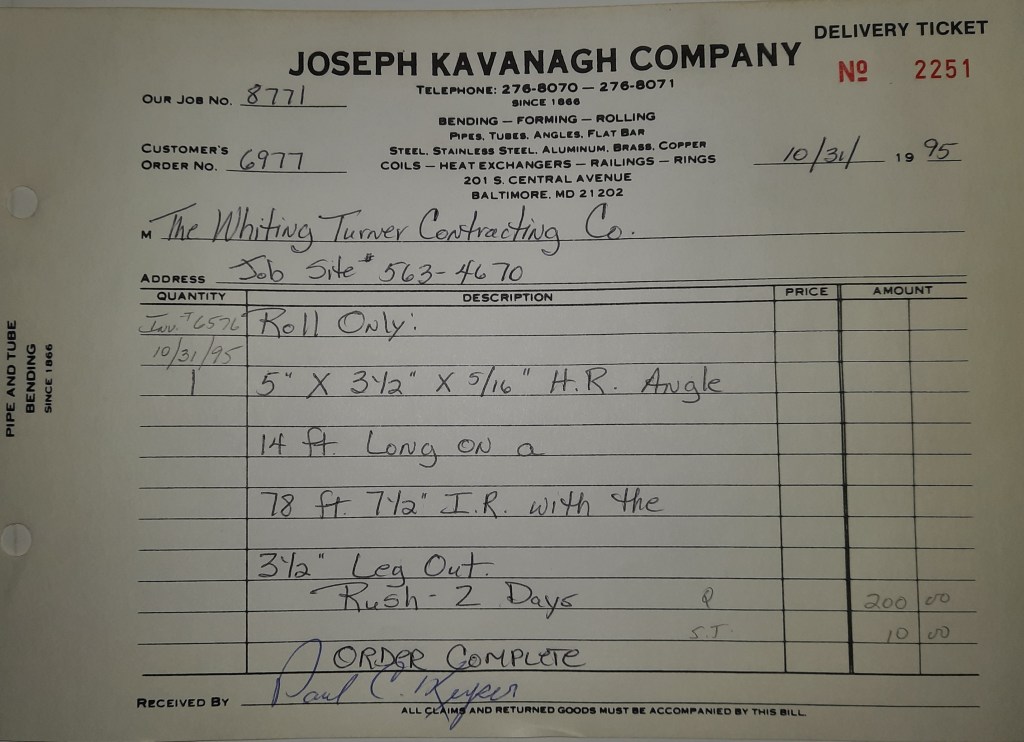 DELIVERY TICKET
JOSEPH KAVANAGH COMPANY
Nº 2251
TELEPHONE: 276-8070 — 276-8071
SINCE 1866
OUR JOB NO. 8771
BENDING — FORMING — ROLLING
PIPES, TUBES, ANGLES, FLAT BAR
STEEL, STAINLESS STEEL, ALUMINUM, BRASS, COPPER
COILS — HEAT EXCHANGERS — RAILINGS — RINGS
CUSTOMER'S
ORDER NO. 6977
10/31/ 19 95
201 S. CENTRAL AVENUE
BALTIMORE, MD 21202
M The Whiting Turner Contracting Co.
ADDRESS Job Site # 563-4670
QUANTITY DESCRIPTION PRICE AMOUNT
Inv. # 6576 Roll Only:
10/31/95
1 5" X 3 1/2" X 5/16" H.R. Angle
14 ft. Long on a
78 ft. 7 1/2" I.R. with the
3 1/2" Leg Out.
Rush - 2 Days Q 200 00
S.T. 10 00
ORDER COMPLETE
RECEIVED BY Paul C.
ALL CLAIMS AND RETURNED GOODS MUST BE ACCOMPANIED BY THIS BILL
PIPE AND TUBE
BENDING
SINCE 1866